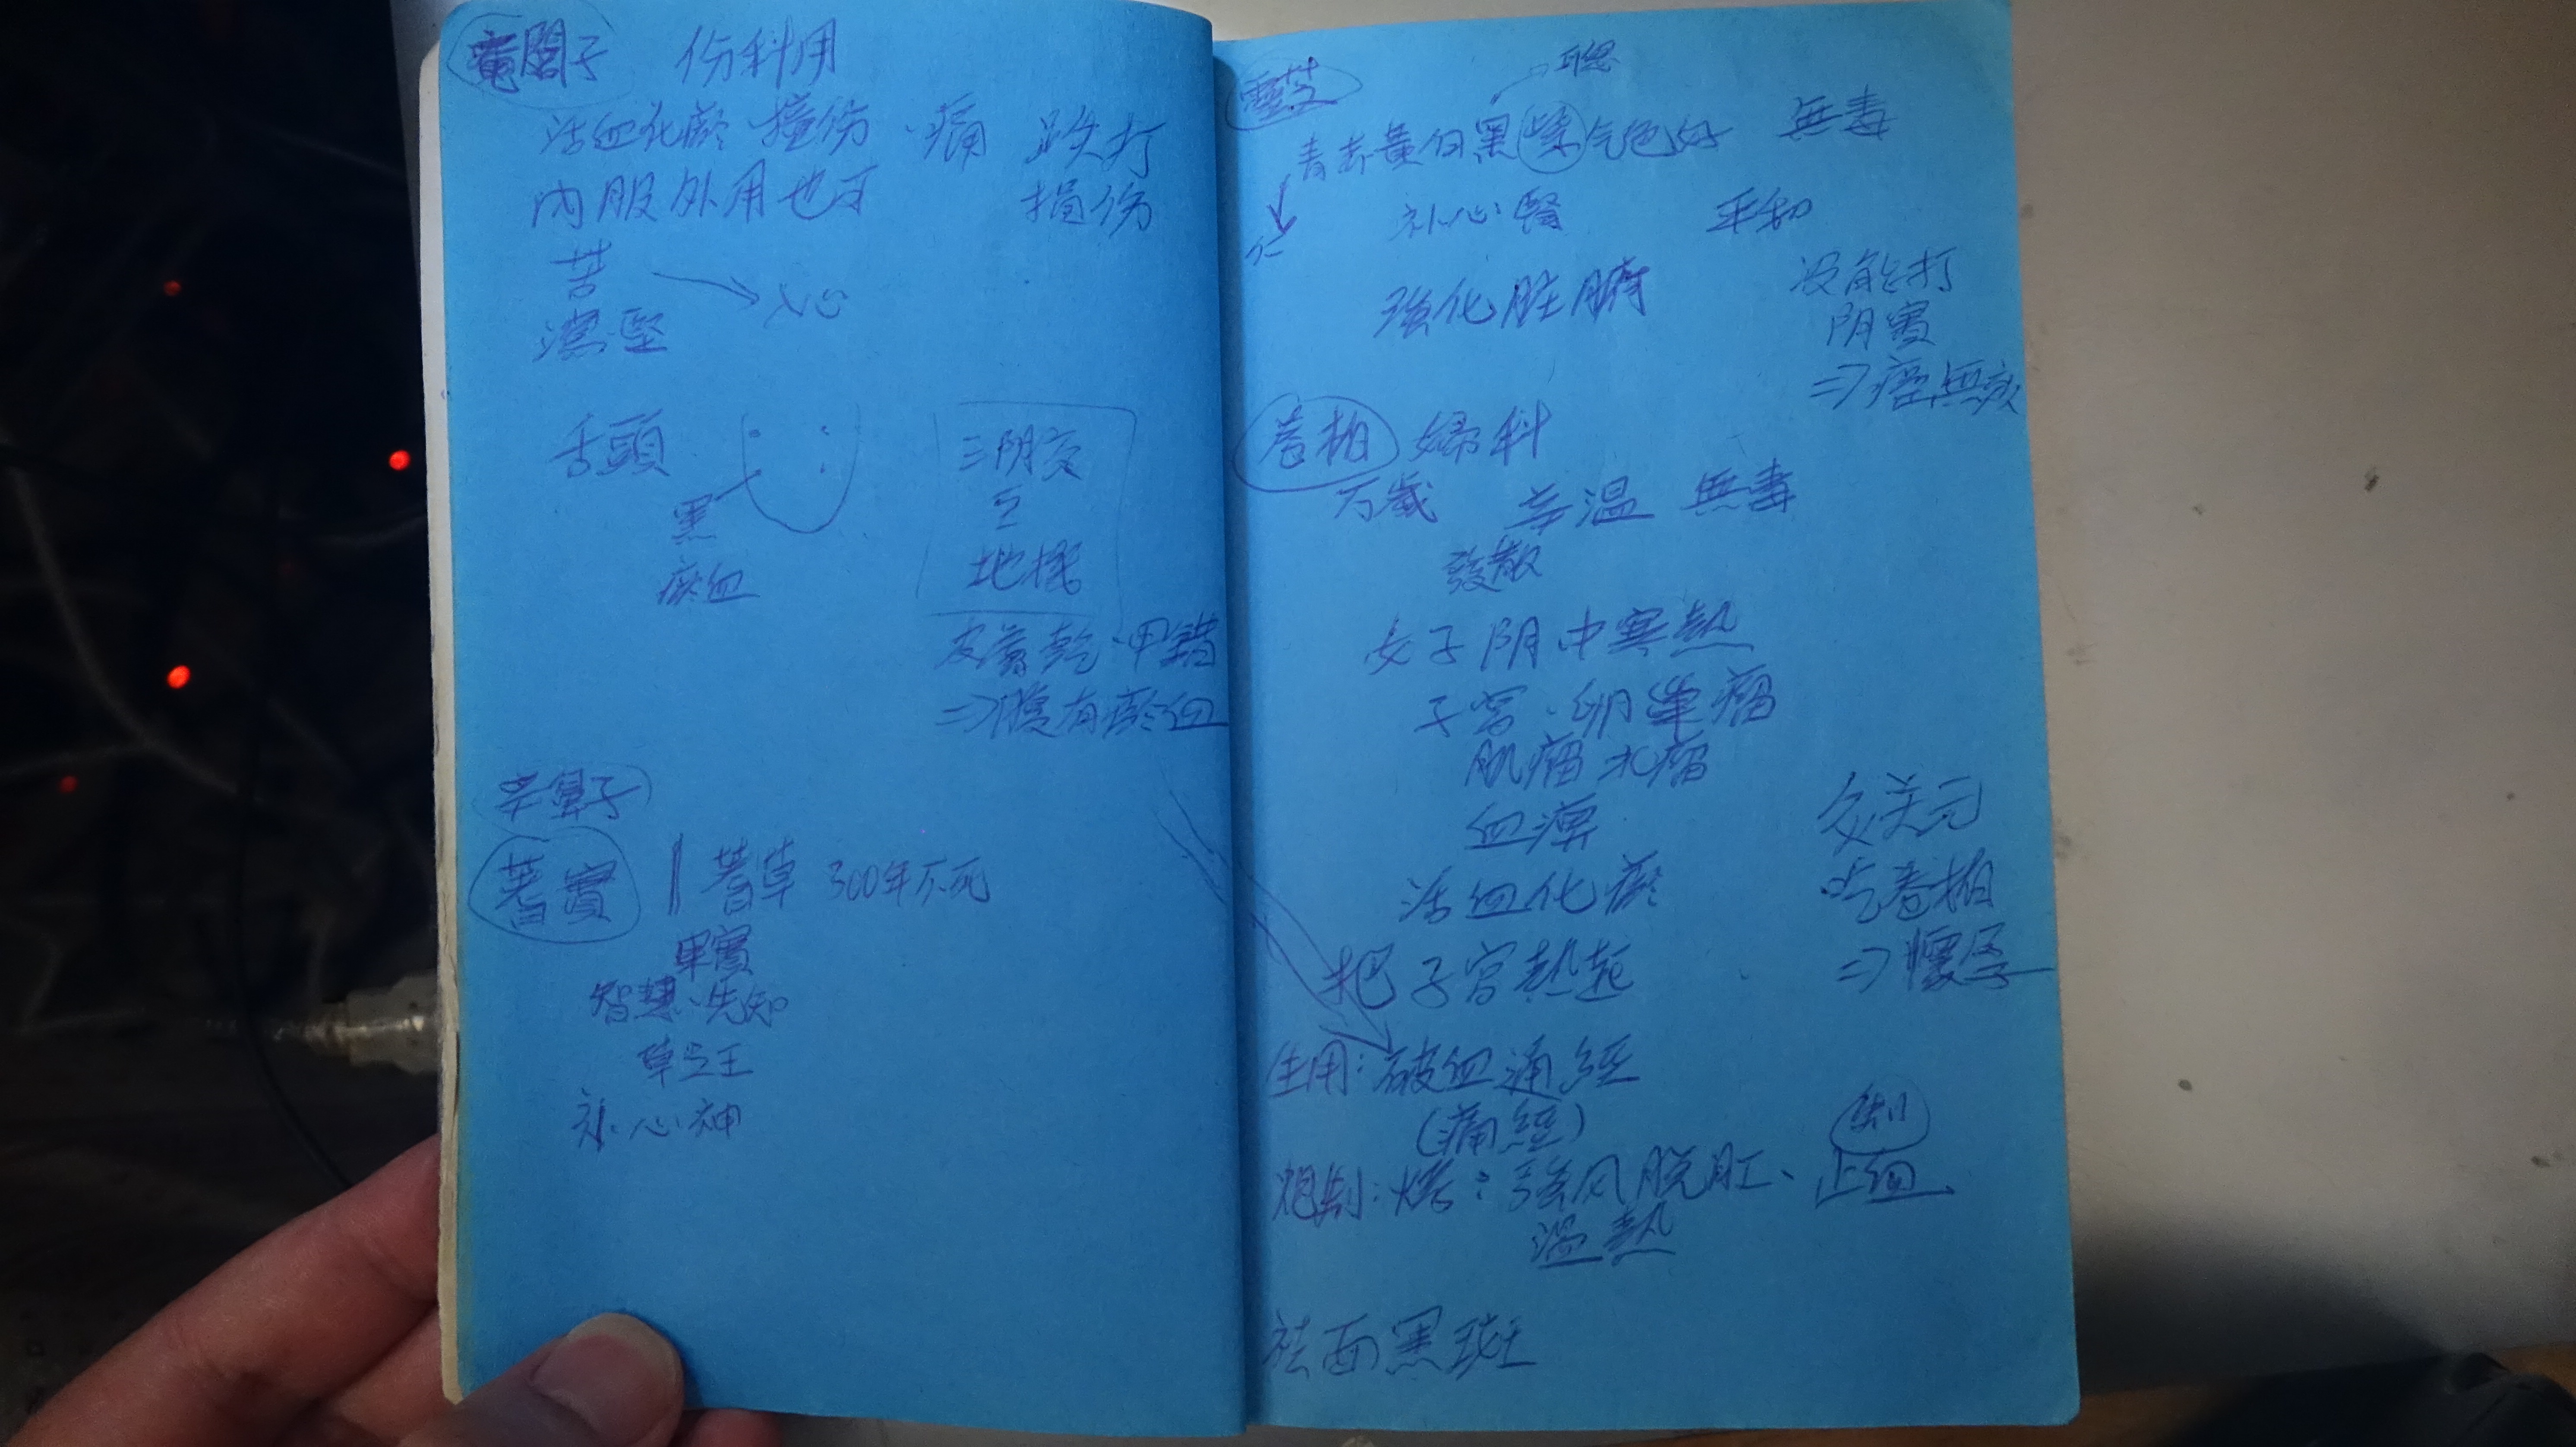 菴閭子 伤科用
活血化瘀、撞伤、痛 跌打
內服外用也可 損伤
苦
濕.堅 → 心
舌頭
黑
瘀血
三阴交
至
地機
皮膚乾、甲錯
⇒腹有瘀血
辛鼻子
蓍實 蓍草 300年不死
果實
智慧、先知
草之王
补心神
靈芝 聰
青赤黃白黑紫气色好 無毒
仁 补心腎 平和
強化脏腑 没能打
阴實
⇒癌無效
卷柏 婦科
万歲 辛温 無毒
發散
女子阴中寒熱
子宮、卵巢瘤
肌瘤 水瘤
血瘕
活血化瘀
把子宮熱起
灸关元
吃卷柏
⇒懷孕
生用:破血通經
(痛經)
炮制: 脱肛、止血
温熱
祛面黑斑